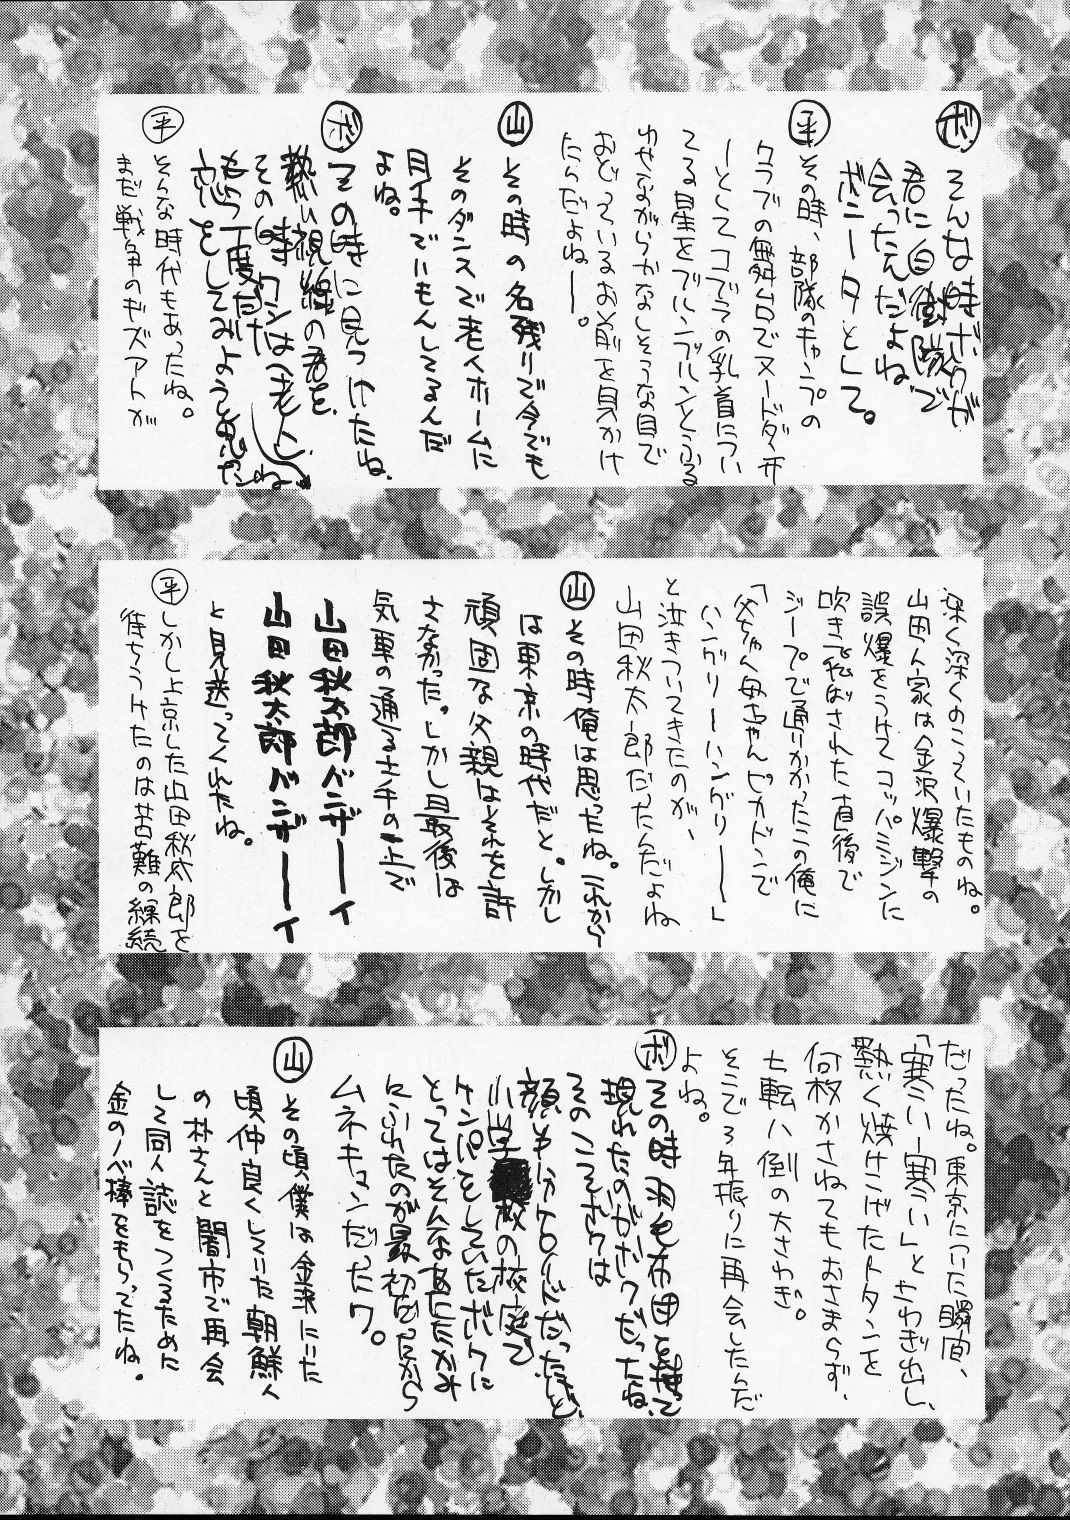 ボ そんな時ボクが
君に白樹隊で
会ったんだよね
ボニータとして。
平 その時、部隊のキャンプの
クラブの舞台でヌードダンサ
ーとしてコブラの乳首につい
てる星をブルンブルンとふる
わせながらかなしそうな目で
おどっているお前を見かけ
たんだよねー。
山 その時の名残りで今でも
そのダンスで老人ホームに
目手でいもんしてるんだ
よね。
ボ その時に見つけたね、
熱い視線の君を、
その時ワシは老し
もう丁度だ
恋をしてみようと思った
平 そんな時代もあったね。
まだ戦争のギズアトが
深く深くのこっていたものね。
山田ん家は金沢爆撃の
誤爆をうけてコッパミジンに
吹きとばされた直後で
ジープで通りかかったこの俺に
「父ちゃん母ちゃんピカドンで
ハングリーハングリー―」
と泣きついてきたのが、
山田秋太郎だったんだよね
山 その時俺は思ったね。これから
は東京の時代だと。しかし
頑固な父親はそれを許
さなかった。しかし最後は
気車の通る土手の上で
山田秋太郎バンザーイ
山田秋太郎バンザーイ
と見送ってくれたね。
平 しかし上京した山田秋太郎を
待ちうけたのは苦難の繰続
だったね。東京についた瞬間、
「寒い寒い」とさわぎ出し、
熱く焼けこげたトタンを
何枚かさねてもおさまらず、
七転八倒の大さわぎ。
そこで3年振りに再会したんだ
よね。
ボ その時羽毛布団を持って
現れたのがボクだったね、
そのころボクは
顔もハカロイドだったけど、
小学校の校庭で
ケンパをしていたボクに
とってはそんなあたたかみ
にふれたのが最初だったから
ムネキュンだったワ。
山 その頃、僕は金沢にいた
頃仲良くしていた朝鮮人
の朴さんと闇市で再会
して同人誌をつくるために
金のノベ棒をもらってたね。